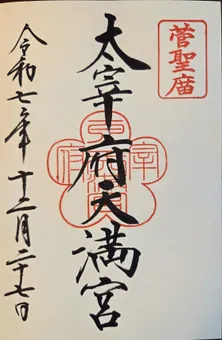 菅聖庿
太宰府天満宮
令和七年十二月二十七日